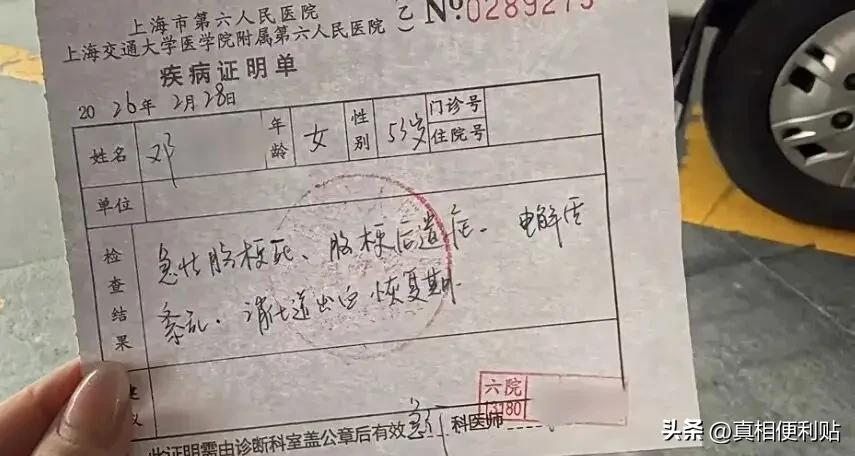 上海市第六人民医院
上海交通大学医学院附属第六人民医院
(乙) №0289275
疾病证明单
2026年2月28日
姓名 邓 年龄 女 性别 53岁 门诊号 住院号
单位
检查结果
急性脑梗死、脑梗后遗症、电解质
紊乱、消化道出血恢复期
六院
3180
此证明需由诊断科室盖公章后有效 急 科医师
头条 @真相便利贴